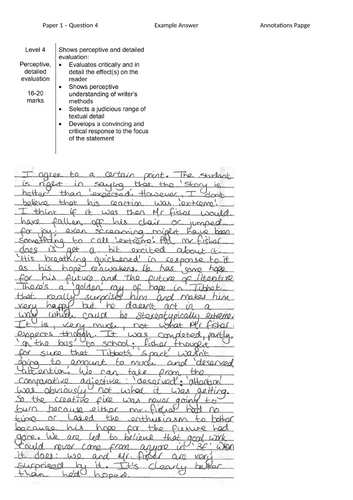 Paper 1 – Question 4 Example Answer Annotations Pappe
Level 4
Perceptive,
detailed
evaluation
16-20
marks
Shows perceptive and detailed
evaluation:
• Evaluates critically and in
detail the effect(s) on the
reader
• Shows perceptive
understanding of writer's
methods
• Selects a judicious range of
textual detail
• Develops a convincing and
critical response to the focus
of the statement
I agree to a certain point. The student
is right in saying that the 'story is
better than expected'. However, I don't
believe that his reaction was 'extreme'.
I think if it was then Mr Fisher would
have fallen off his chair or jumped
for joy; even screaming might have been
something to call 'extreme'. Mr Fisher
does get a bit excited about it.
'His breathing quickened' in response to it
as his hope reawakens. He has some hope
for his future and the future of literature
There's a 'golden' ray of hope in Tibbot
that really surprises him and makes him
very happy but he doesn't act in a
way which could be stereotypically extreme.
It is, very much, not what Mr Fisher
expects though. It was completed, partly,
'on the bus' to school; Fisher thought
for sure that Tibbot's 'spark' wasn't
going to amount to much and 'deserved
attention'. We can take from the
comparative adjective: 'deserved'; 'attention'
was obviously not what it was getting.
So the creative fire was never going to
burn because either Mr Fisher had no
time or lacked the enthusiasm to bother
because his hope for the future had
gone. We are led to believe that good work
could never come from anyone in '3F' when
it does: we and Mr Fisher are very
surprised by it. It's clearly better
than he'd hoped.